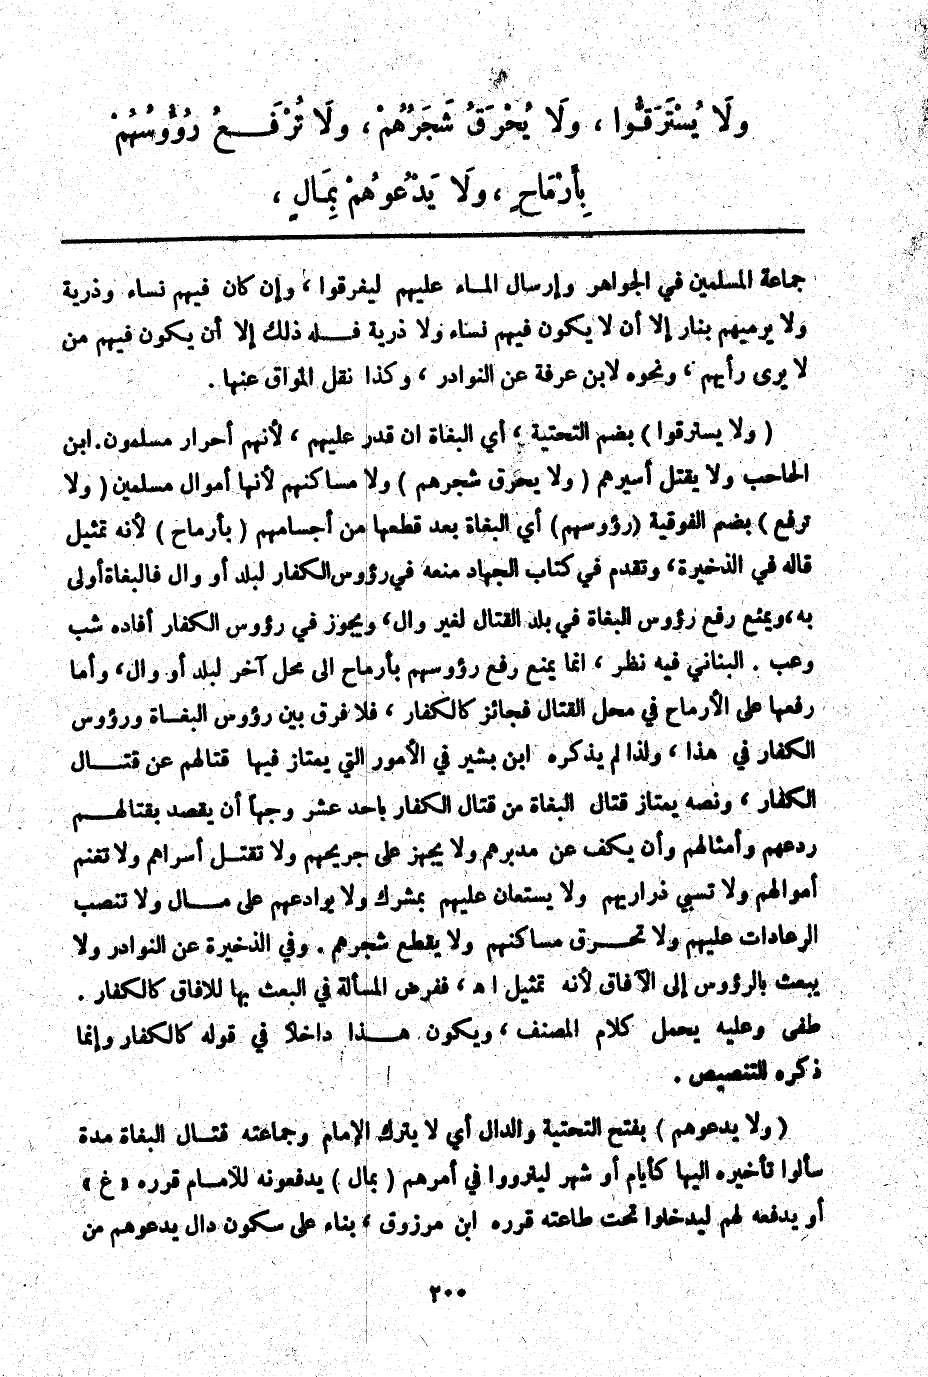 ولَا يُسْتَرَقُّوا ، ولَا يُحْرَقُ شَجَرُهُمْ ، ولَا تُرْفَعُ رُؤُوسُهُمْ
بِأَرْمَاحٍ ، ولَا يَدْعُوهُمْ بِمَالٍ ،
جماعة المسلمين في الجواهر وإرسال الماء عليهم ليغرقوا ، وإن كان فيهم نساء وذرية
ولا يرميهم بنار إلا أن لا يكون فيهم نساء ولا ذرية فله ذلك إلا أن يكون فيهم من
لا يرى رأيهم ، ونحوه لابن عرفة عن النوادر ، وكذا نقل المواق عنها .
( ولا يسترقوا ) بضم التحتية ، أي البغاة ان قدر عليهم ، لأنهم أحرار مسلمون. ابن
الحاجب ولا يقتل أسيرهم ( ولا يحرق شجرهم ) ولا مساكنهم لأنها أموال مسلمين ( ولا
ترفع ) بضم الفوقية (رؤوسهم) أي البغاة بعد قطعها من أجسامهم ( بأرماح ) لأنه تمثيل
قاله في الذخيرة، وتقدم في كتاب الجهاد منعه في رؤوس الكفار لبلد أو وال فالبغاة أولى
به، ويمنع رفع رؤوس البغاة في بلد القتال لغير وال، ويجوز في رؤوس الكفار أفاده شب
وعب . البناني فيه نظر ، انما يمنع رفع رؤوسهم بأرماح الى محل آخر لبلد أو وال، وأما
رفعها على الأرماح في محل القتال فجائز كالكفار ، فلا فرق بين رؤوس البغاة ورؤوس
الكفار في هذا ، ولذا لم يذكره ابن بشير في الأمور التي يمتاز فيها قتالهم عن قتال
الكفار ، ونصه يمتاز قتال البغاة من قتال الكفار باحد عشر وجهاً أن يقصد بقتالهم
ردعهم وأمثالهم وأن يكف عن مدبرهم ولا يجهز على جريحهم ولا تقتل أسراهم ولا تغنم
أموالهم ولا تسبي ذراريهم ولا يستعان عليهم بمشرك ولا يوادعهم على مال ولا تنصب
الرعادات عليهم ولا تحرق مساكنهم ولا يقطع شجرهم . وفي الذخيرة عن النوادر ولا
يبعث بالرؤوس إلى الآفاق لأنه تمثيل ا ه ، ففرض المسألة في البعث بها للافاق كالكفار .
طفى وعليه يحمل كلام المصنف ، ويكون هذا داخلاً في قوله كالكفار وإنما
ذكره للتنصيص .
( ولا يدعوهم ) بفتح التحتية والدال أي لا يترك الإمام وجماعته قتال البغاة مدة
سألوا تأخيره اليها كأيام أو شهر ليترووا في أمرهم ( بمال ) يدفعونه للامام قرره « غ »
أو يدفعه لهم ليدخلوا تحت طاعته قرره ابن مرزوق ، بناء على سكون دال يدعوهم من
٢٠٠